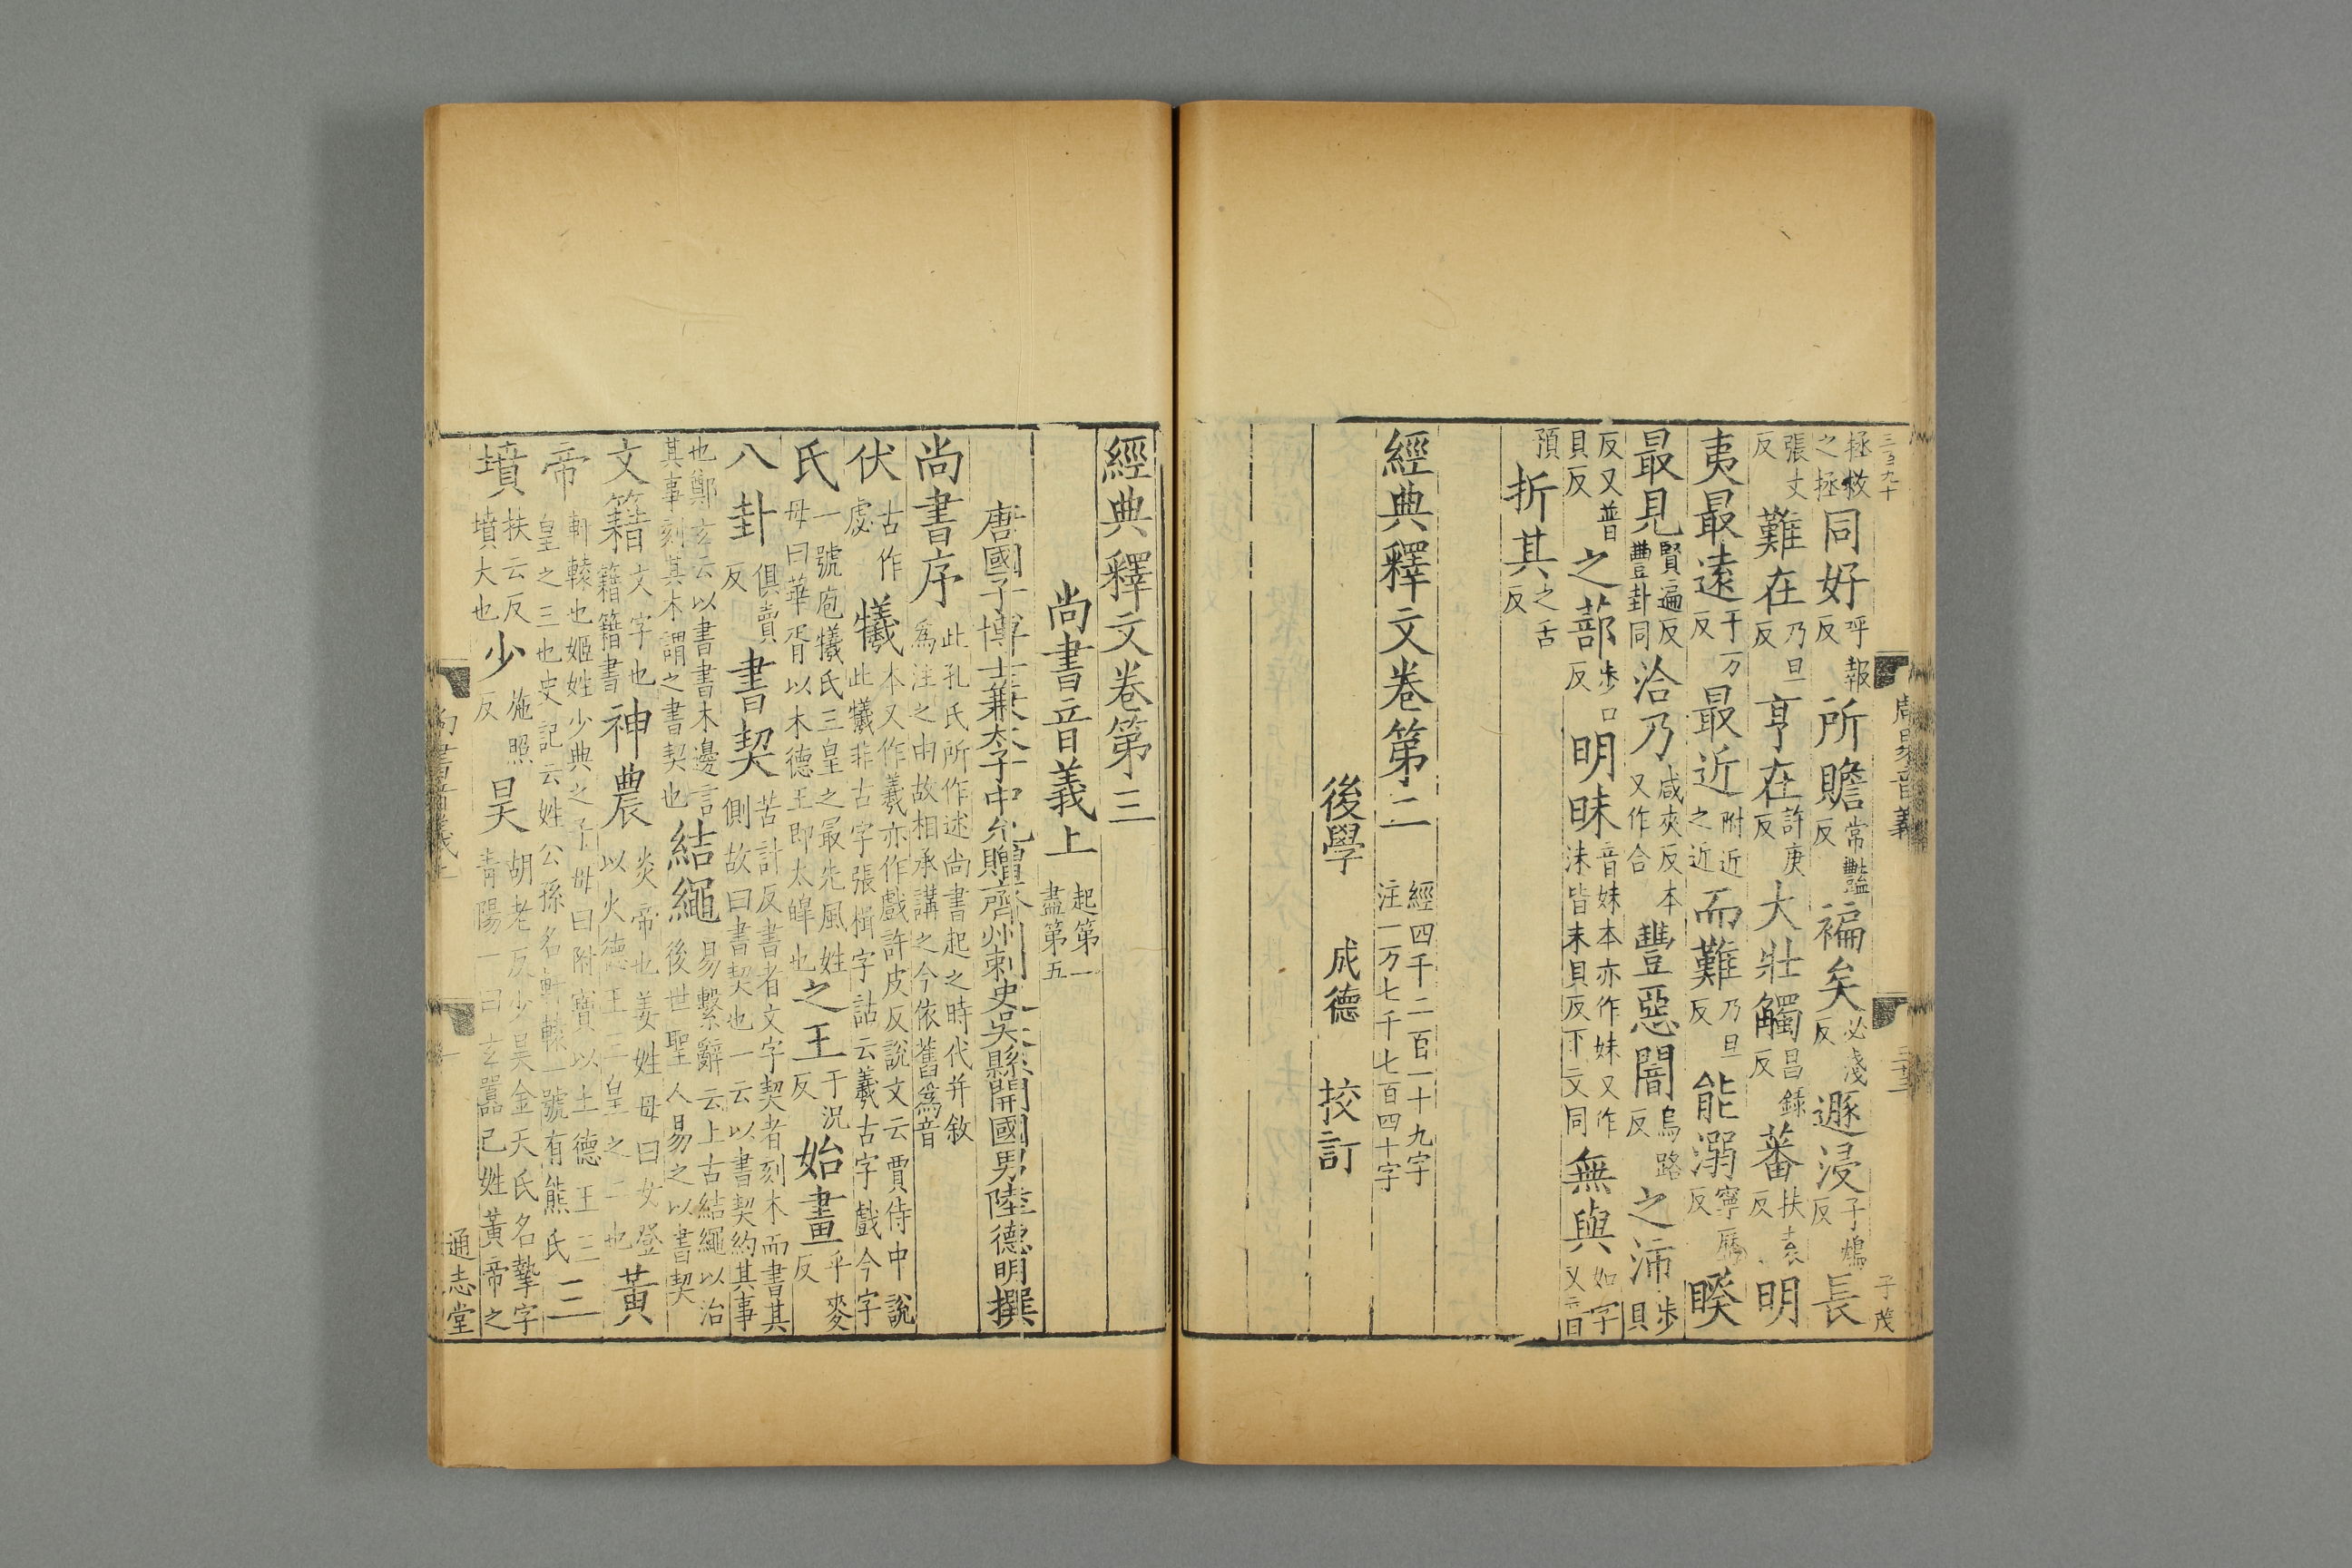 三百九十
周易音義
拯救之拯同好呼報反所贍常豔反褊矣必淺反遯浸子鴆反長
張丈反難在乃旦反亨在許庚反大壯觸昌錄反蕃扶袁反明
夷最遠于万反最近附近之近而難乃旦反能溺寧歷反睽
最見賢遍反豐卦同洽乃咸夾反本又作合豐惡闇烏路反之沛步貝
反又普貝反之蔀步口反明昧音妹本亦作妹又作沬皆末貝反下文同無與如字又音
預折其之舌反
經典釋文卷第二經四千二百一十九字注一万七千七百四十字
後學 成德 挍訂
經典釋文卷第三
尚書音義上起第一盡第五
唐國子博士兼太子中允贈齊州刺史吳縣開國男陸德明撰
尚書序此孔氏所作述尚書起之時代并敘爲注之由故相承講之今依舊爲音
伏古作虙犧本又作羲亦作戲許皮反說文云賈侍中說此犧非古字張揖字詁云羲古字戲今字
氏一號庖犧氏三皇之最先風姓母曰華胥以木德王即太皥也之王于況反始畫乎麥反
八卦俱賣反書契苦計反書者文字契者刻木而書其側故曰書契也一云以書契約其事
也鄭玄云以書書木邊言其事刻其木謂之書契也結繩易繫辭云上古結繩以治後世聖人易之以書契
文籍文字也籍籍書神農炎帝也姜姓母曰女登以火德王三皇之二也黃
帝軒轅也姬姓少典之子母曰附寶以土德王三皇之三也史記云姓公孫名軒轅一號有熊氏三
墳扶云反墳大也少施照反昊胡老反少昊金天氏名摯字青陽一曰玄囂己姓黃帝之
尚書音義上
一
通志堂